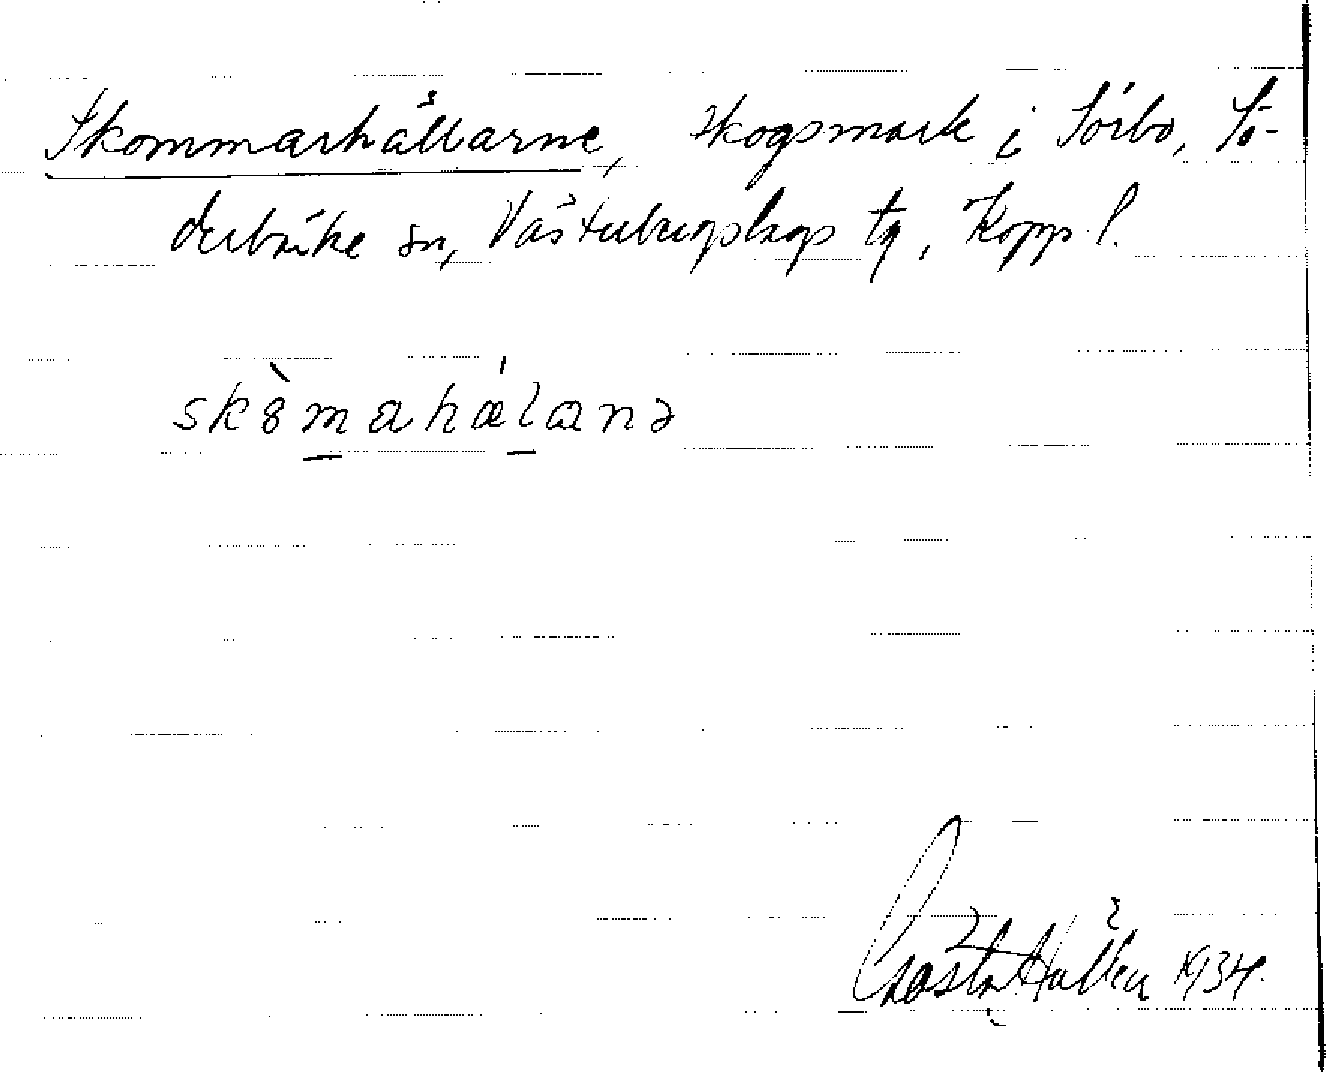 Skommarhällarne, skogsmark i Sörbo, Sö-
derbärke sn, Västerbergslags tg, Kopp. l.
skòmahǽlanə
Gösta Hallén 1934.